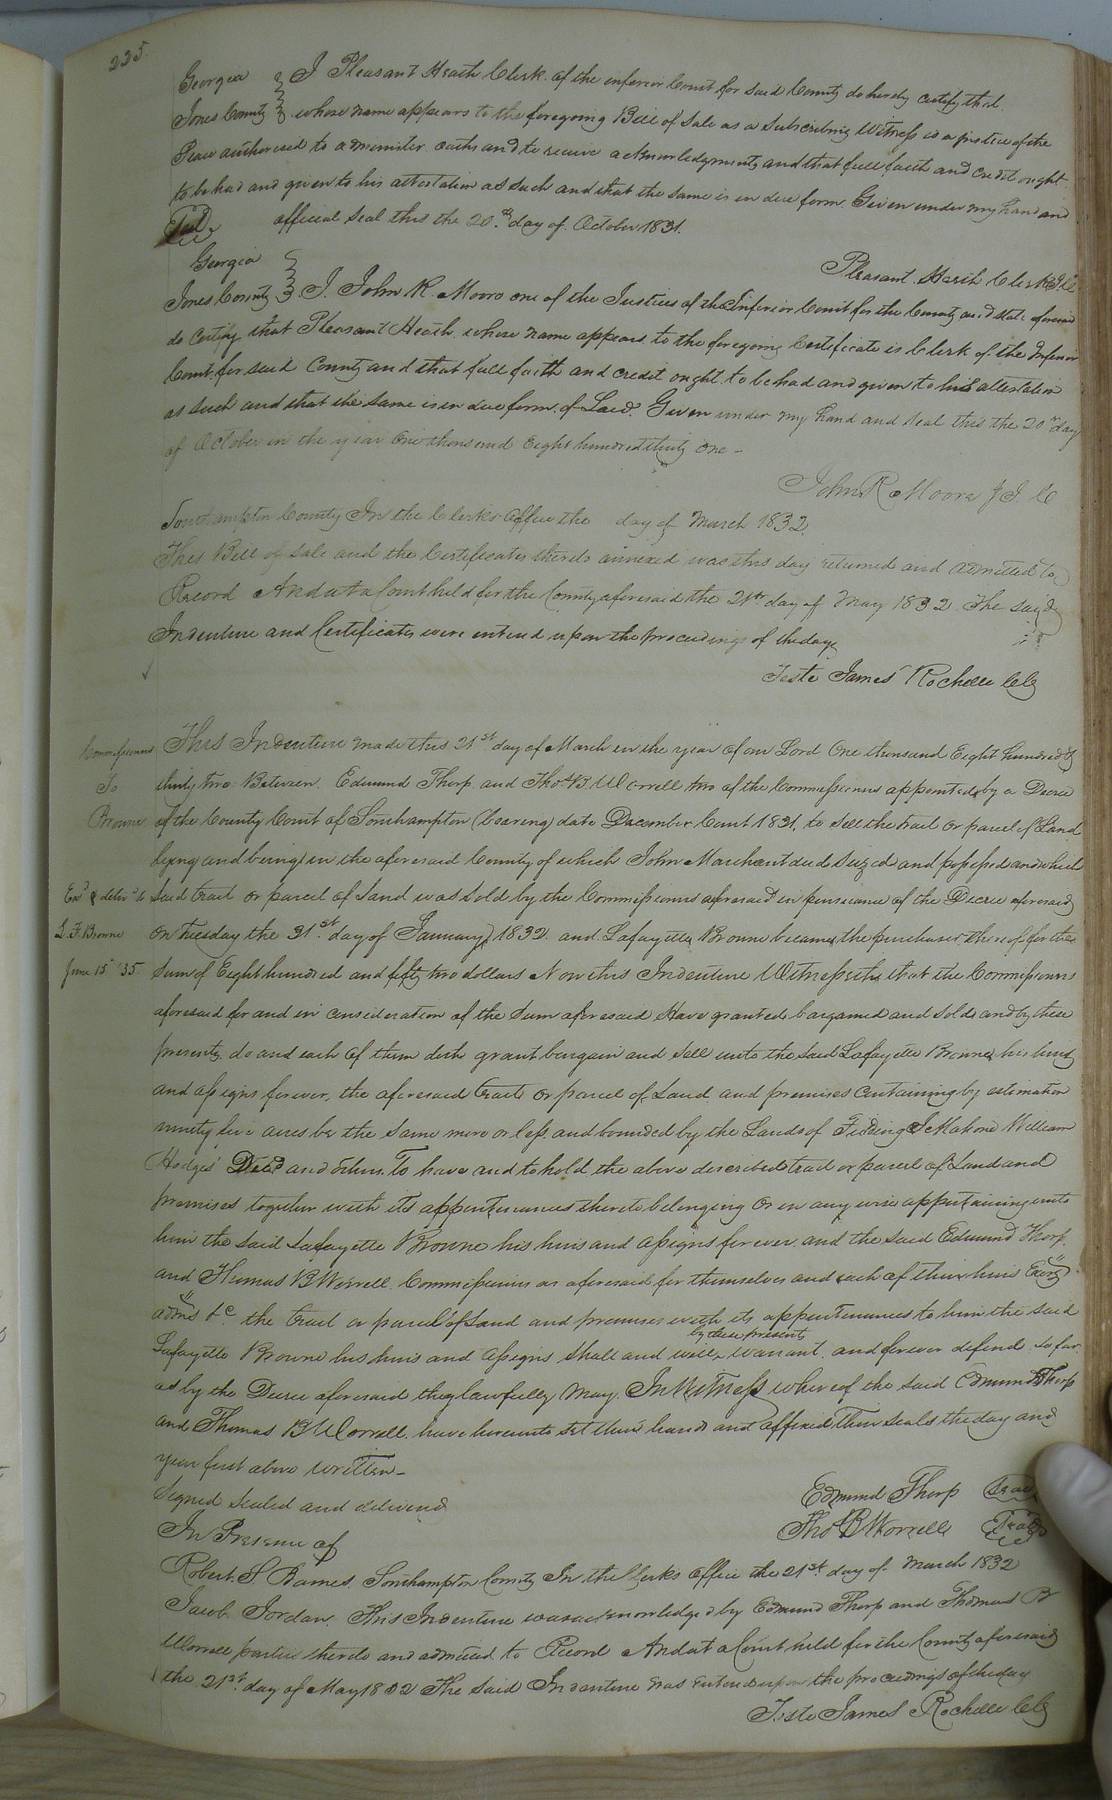 235.
Georgia } I Pleasant Heath Clerk of the inferior Court for said County do hereby certify that
Jones County } whose name appears to the foregoing Bill of Sale as a Subscribing Witness is a justice of the
Peace authorised to administer oaths and to receive acknowledgments and that full faith and credit ought
to be had and given to his attestation as such and that the same is in due form Given under my hand and
Seal official Seal this the 20th day of October 1831.
Pleasant Heath Clerk I.C.
Georgia
Jones County } I. John R. Moore one of the Justices of the Inferior Court for the County and State aforesaid
do certify that Pleasant Heath whose name appears to the foregoing Certificate is Clerk of the Inferior
Court for said County and that full faith and credit ought to be had and given to his attestation
as such and that the same is in due form of Law. Given under my hand and seal this the 20th day
of October in the year One thousand Eight hundred thirty one -
John R Moore J I C
Southampton County In the Clerks Office the day of March 1832.
This Bill of Sale and the Certificates thereto annexed was this day returned and admitted to
Record And at a Court held for the County aforesaid the 21st day of May 1832 The said
Indenture and Certificates were entered upon the proceedings of the day
Teste James Rochelle Clk
Commissioners
To
Browne
Exd & delivd to
L. F. Browne
June 15 '35
This Indenture made this 21st day of March in the year of our Lord One thousand Eight hundred &
thirty two Between Edmund Thorp and Thos. B. Worrell two of the Commissioners appointed by a Decree
of the County Court of Southampton (bearing) date December Court 1831, to sell the tract or parcel of Land
lying and being in the aforesaid County of which John Marchant died seized and possessed and which
said tract or parcel of Land was sold by the Commissioners aforesaid in pursuance of the Decree aforesaid
on Tuesday the 31st day of January 1832 and Lafayette Browne became the purchaser thereof for the
sum of Eight hundred and fifty two dollars Now this Indenture Witnesseth that the Commissioners
aforesaid for and in consideration of the sum aforesaid Have granted bargained and sold and by these
presents do and each of them doth grant bargain and sell unto the said Lafayette Browne his heirs
and assigns forever, the aforesaid tract or parcel of Land and premises containing by estimation
ninety acres be the same more or less and bounded by the Lands of Mahone William
Hodges' Decd and others. To have and to hold the above described tract or parcel of Land and
premises together with its appurtenances thereto belonging or in any wise appertaining unto
him the said Lafayette Browne his heirs and assigns forever and the said Edmund Thorp
and Thomas B Worrell Commissioners as aforesaid for themselves and each of their heirs Exors
adms &c the tract or parcel of Land and premises with its appurtenances to him the said
Lafayette Browne his heirs and assigns shall and will by these presents warrant and forever defend so far
as by the Decree aforesaid they lawfully may. In Witness whereof the said Edmund Thorp
and Thomas B Worrell have hereunto set their hands and affixed their seals the day and
year first above written -
Signed sealed and delivered Edmund Thorp Seal
In Presence of Tho B Worrell Seal
Robert. S. Barnes. Southampton County In the Clerks Office the 21st day of March 1832
Jacob Jordan. This Indenture was acknowledged by Edmund Thorp and Thomas B
Worrell parties thereto and admitted to Record And at a Court held for the County aforesaid
the 21st day of May 1832 The said Indenture was entered upon the proceedings of the day
Teste James Rochelle Clk